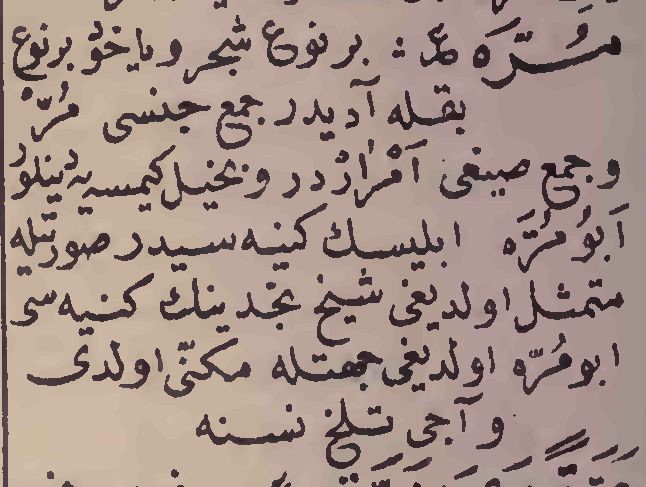 مُرَّه عر : بر نوع شجر و یاخود بر نوع
بقله آدیدر جمع جنسی مُرّ
و جمع صیغی اَمْرَارْ در و بخیل کیمسه‌یه دینلور
اَبُو مُرَّه ابلیسك کنیه سیدر صورتیله
متمثل اولدیغی شیخ نجدینك کنیه سی
ابو مُرّه اولدیغی جهتله مکنّی اولدی
و آجی تلخ نسنه